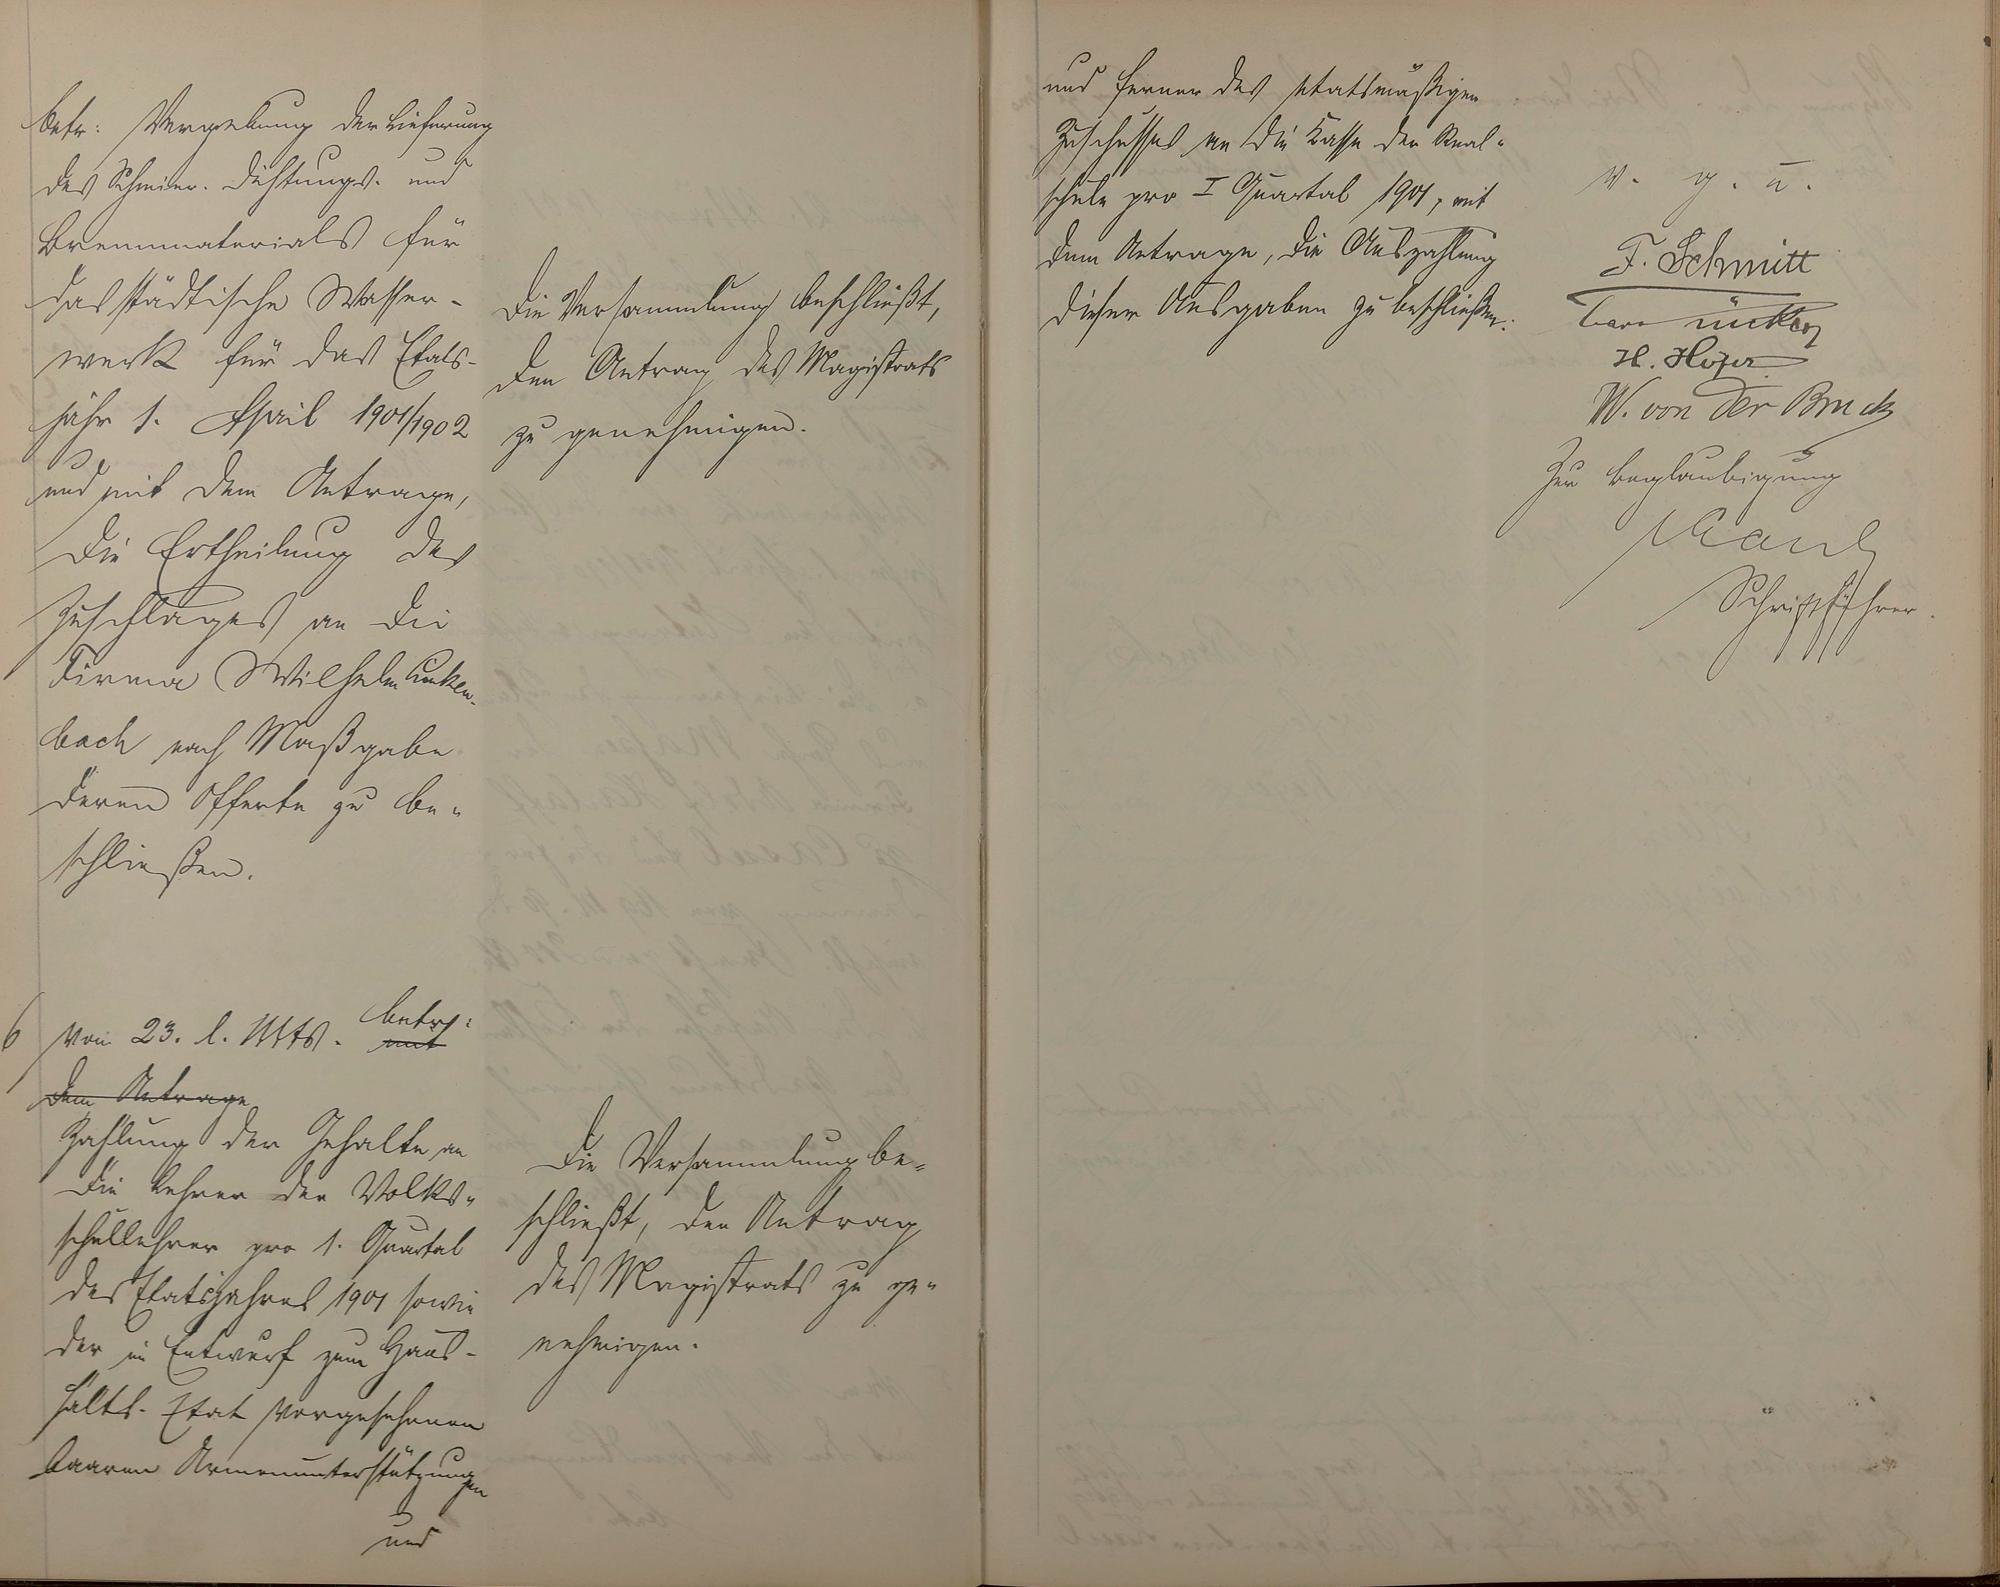 betr: Vergebung der Lieferung
des Schmier- Dichtungs- und
Brennmaterials für
das städtische Wasser-
werk für das Etats-
jahr 1. April 1901/1902
und mit dem Antrage,
die Ertheilung des
Zuschlages an die
Firma Wilhelm Linken-
bach nach Maßgabe
deren Offerte zu be-
schließen.
Die Versammlung beschließt,
den Antrag des Magistrats
zu genehmigen.
6 vom 23. l. Mts. betr:
mit
dem Antrage
Zahlung der Gehalte an
die Lehrer der Volks-
schullehrer pro 1. Quartal
des Etatsjahres 1901 sowie
der im Entwurf zum Haus-
halts-Etat vorgesehenen
baaren Armenunterstützungen
und
Die Versammlung be-
schließt, den Antrag
des Magistrats zu ge-
nehmigen.
und ferner des etatsmäßigen
Zuschusses an die Kasse der Real-
schule pro I Quartal 1901, mit
dem Antrage, die Auszahlung
dieser Ausgaben zu beschließen.
v. g. u.
F. Schmitt
H. Hofer
W. von der Bruck
Zur Beglaubigung
Schriftführer.